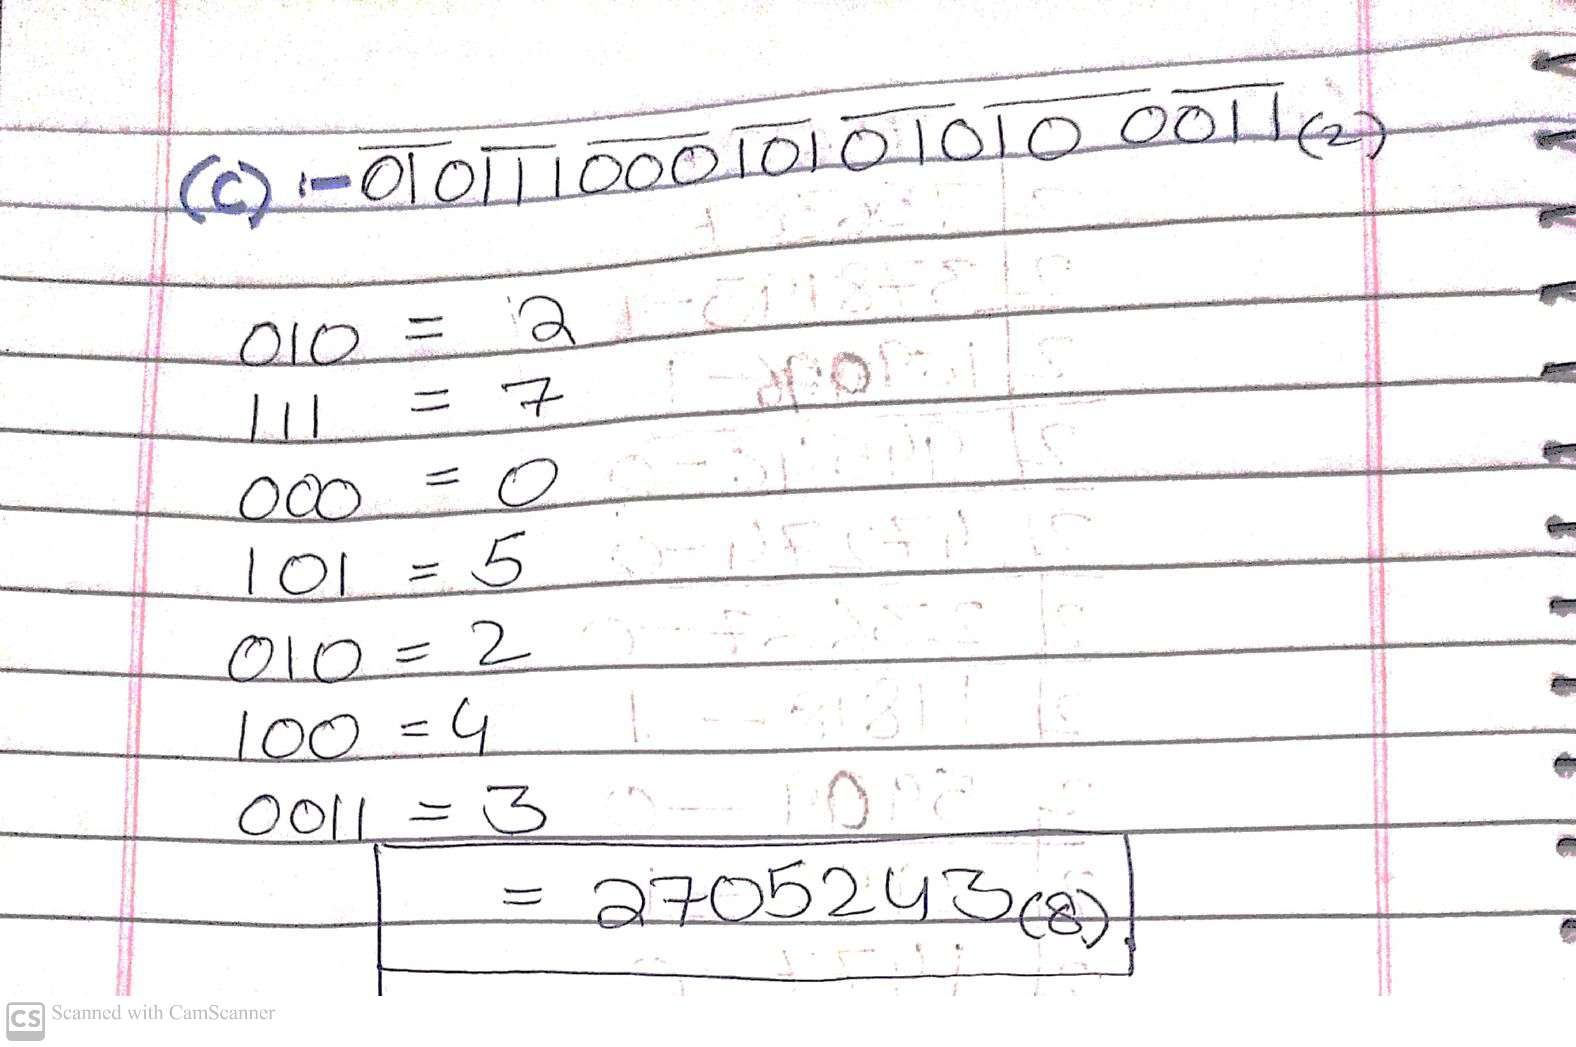 (C) :- 01011100010101010 0011(2)
010 = 2
111 = 7
000 = 0
101 = 5
010 = 2
100 = 4
0011 = 3
= 2705243(8)
CS Scanned with CamScanner